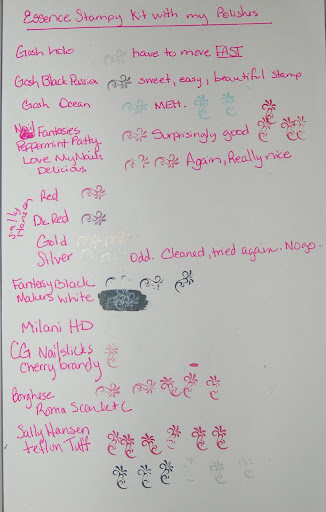 Essence Stampy Kit with my Polishes
Gosh holo have to move FAST
Gosh Black Passion sweet, easy, beautiful stamp
Gosh Ocean MEH.
Nail Fantasies
Peppermint Patty Surprisingly good
Love My Nails
Delicious Again, Really nice
Sally Hanson
Red
Dk Red
Gold
Silver Odd. Cleaned, tried again. No go.
Fantasy Black
Makers White
Milani HD
CG Nailslicks
Cherry brandy
Borghese
Roma Scarlet C
Sally Hansen
Teflon Tuff